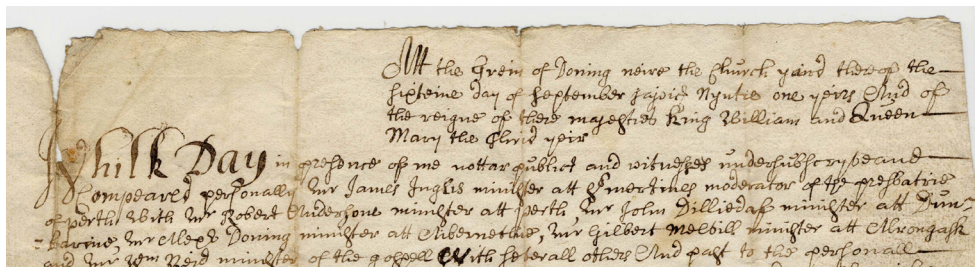 Att the Grein of Doning neire the Church yaird thereof the
sixteine day of September jajvic Nyntie one yeirs And of
the reigne of there majesties King William and Queen
Mary the third yeir
Whilk Day in presence of me nottar publict and witnesses undersubscryveand
Compeared personally Mr James Inglis minister att St mertines moderator of the presbatrie
of perth With Mr Robert Andersone minister att perth, Mr John Dilliedaff minister att Dun-
-barnie, Mr Alexr Doning minister att Abernethie, Mr Gilbert Melvill minister att Arrongask
and Mr Wm Reid minister of the gospell With severall others And past to the personall